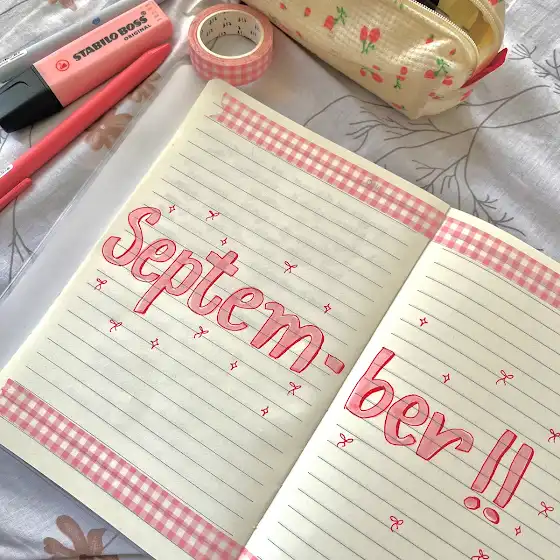 STABILO BOSS
ORIGINAL
Septem-
ber!!